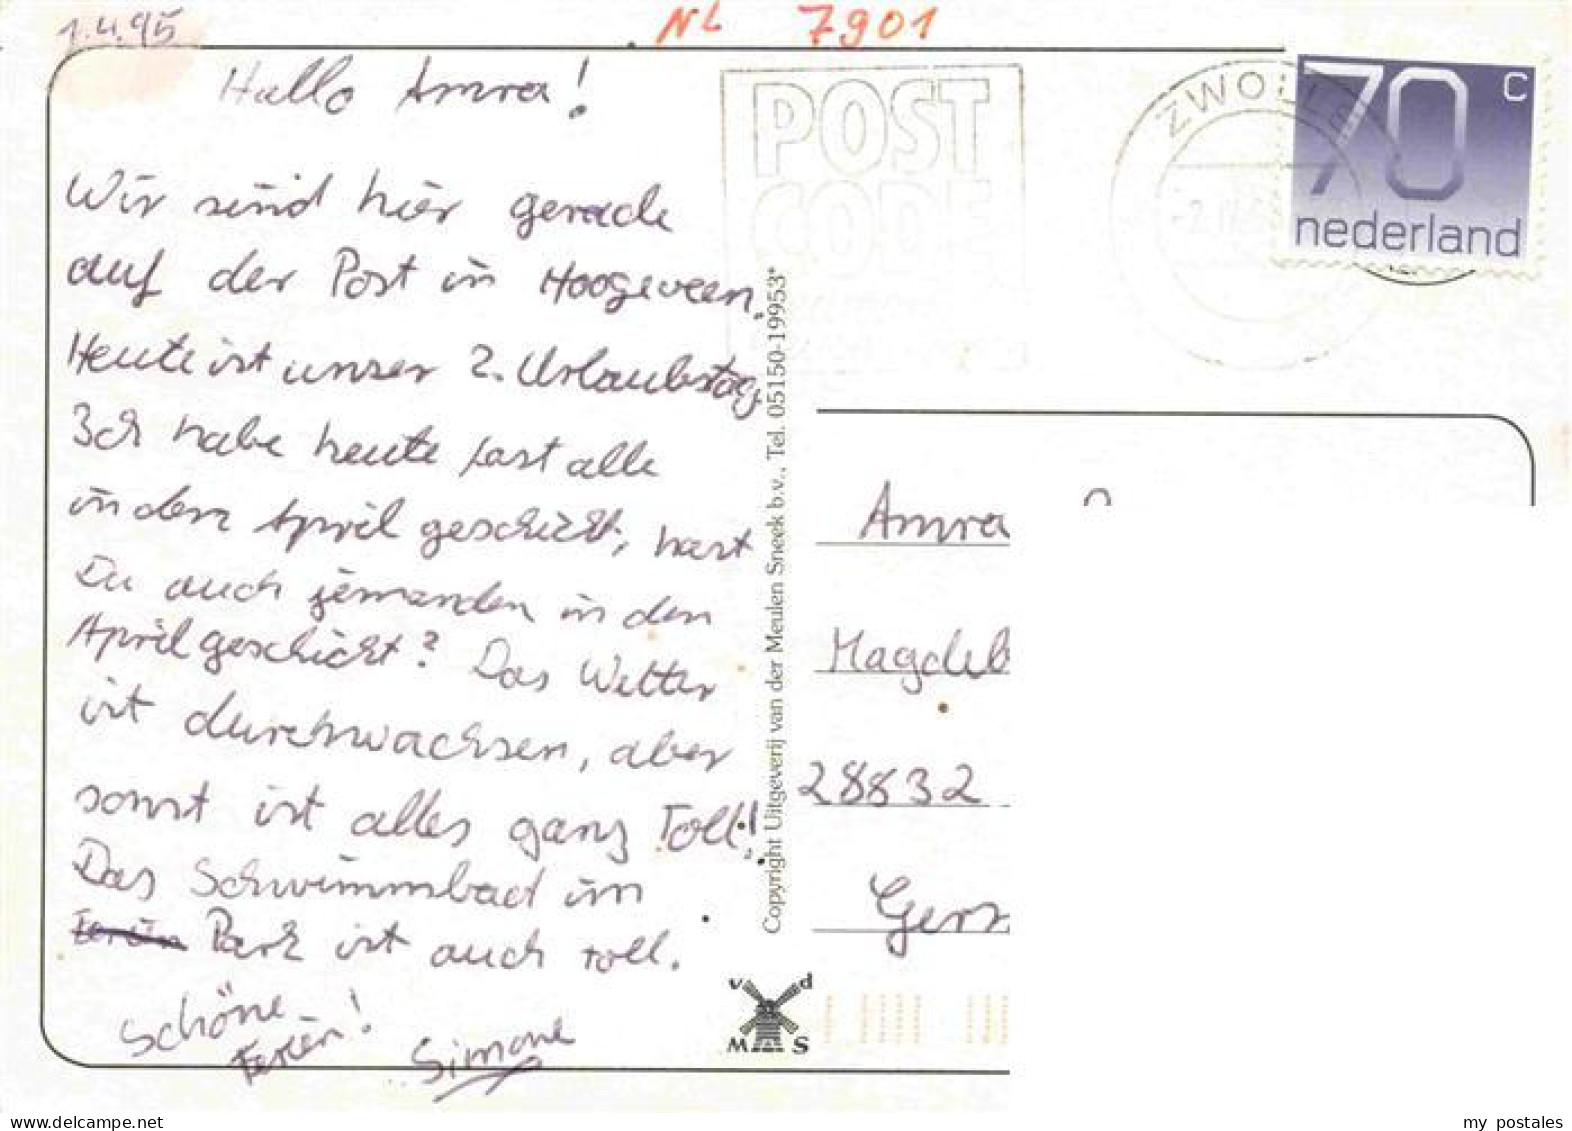 1.4.95
NL 7901
Hallo Amra!
Wir sind hier gerade
auf der Post in Hoogeveen.
Heute ist unser 2. Urlaubstag.
Ich habe heute fast alle
in den April geschickt, hast
Du auch jemanden in den
April geschickt? Das Wetter
ist durchwachsen, aber
sonst ist alles ganz toll!
Das Schwimmbad im
Park ist auch toll.
Schöne
Ferien!
Simone
POST
CODE
ZWOLLE
70 c
nederland
Copyright Uitgeverij van der Meulen Sneek b.v., Tel. 05150-19953*
Amra
Magdeb
28832
Ger
v d
M S
my postales